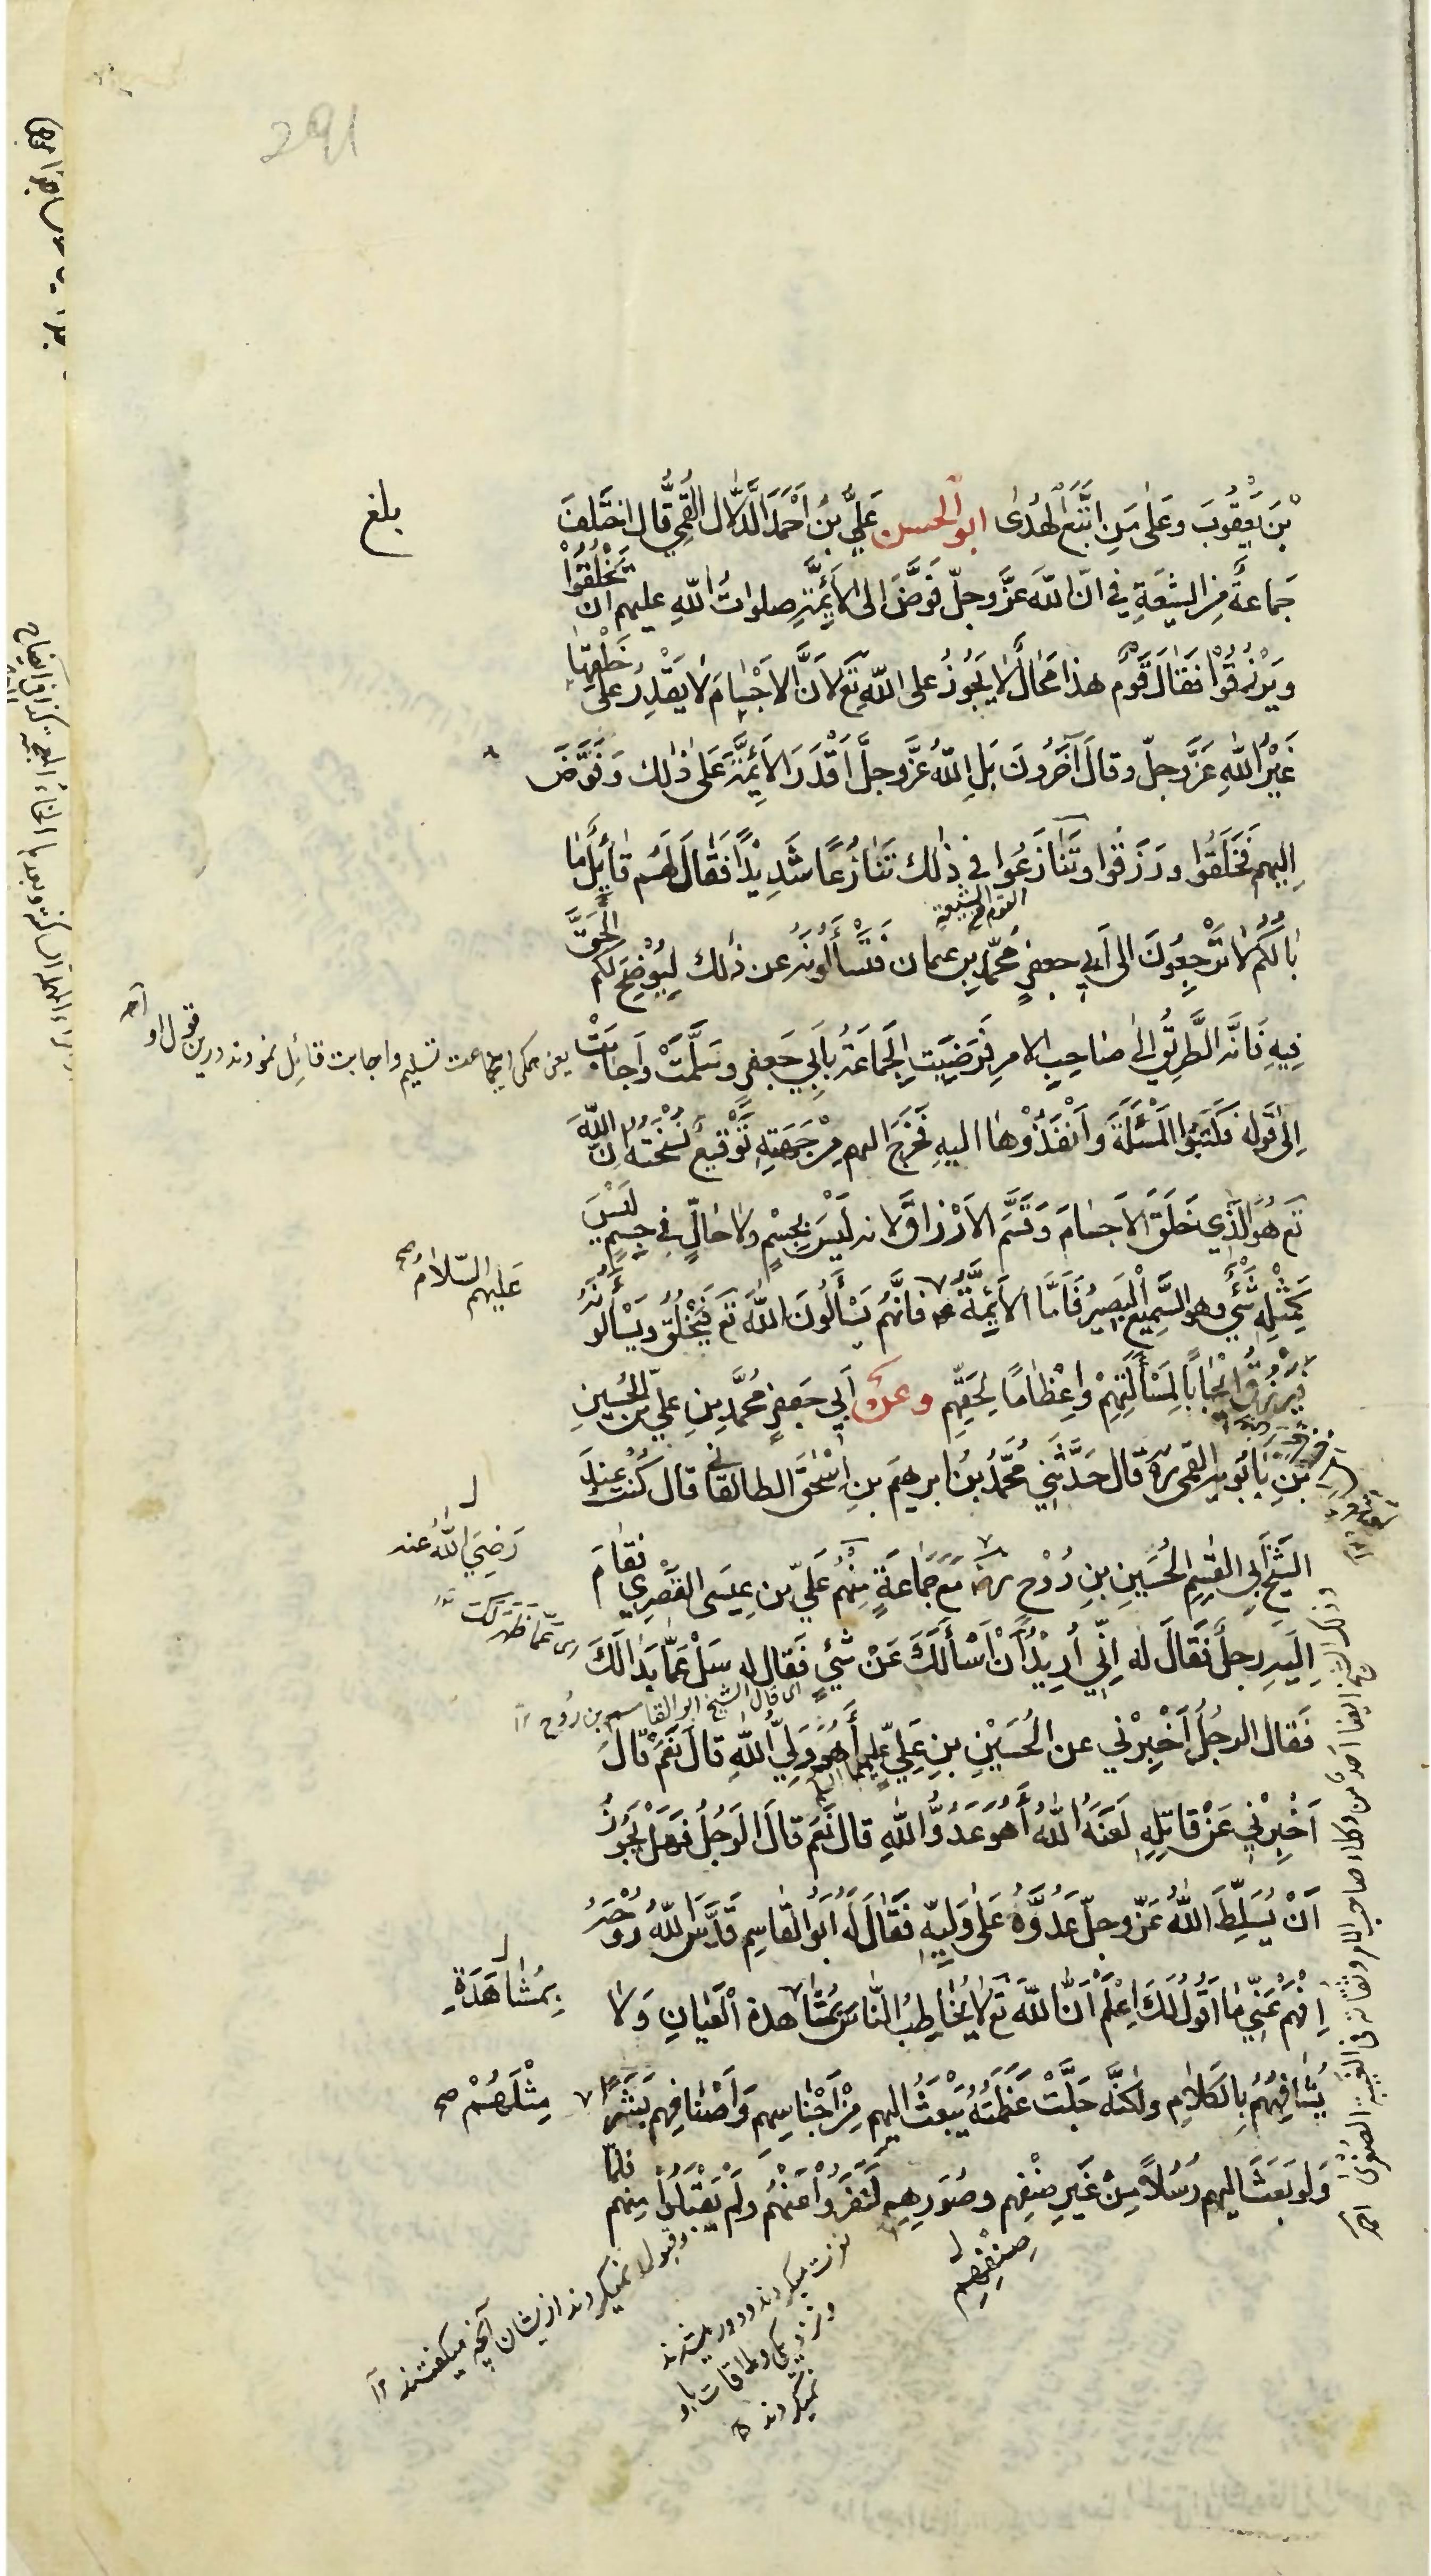 291
بْنَ يَعْقُوبَ وَعَلٰى مَنِ اتَّبَعَ الْهُدٰى ابو الحسن عَلِيُّ بْنُ اَحْمَدَ الدَّلَّال الْقُمِّي قَالَ اخْتَلَفَ
بلغ
جَمَاعَةٌ مِنَ الشِّيعَةِ فِي اَنَّ اللّٰهَ عَزَّ وَجَلَّ فَوَّضَ اِلَى الْاَئِمَّةِ صلواتُ اللّٰهِ عليهم اَنْ يَخْلُقُوْا
وَيَرْزُقُوْا فَقَالَ قَوْمٌ هذا مُحَالٌ لَا يَجُوْزُ عَلَى اللّٰهِ تَعَ لِاَنَّ الْاَجْسَامَ لَا يَقْدِرُ عَلٰى خَلْقِهَا
غَيْرُ اللّٰهِ عَزَّ وَجَلّ وقالَ آخَرُونَ بَلِ اللّٰهُ عَزَّ وَجَلَّ اَقْدَرَ الْاَئِمَّةَ عَلٰى ذٰلِكَ وَفَوَّضَ
اِلَيهم فَخَلَقُوا وَرَزَقُوا وَتَنَازَعُوا فِي ذٰلك تَنَازُعًا شَدِيْدًا فَقَالَ لَهُم قَائِلٌ مَا
بَالُكُمْ لَا تَرْجِعُوْنَ الى اَبِي جعفرٍ مُحَمَّدِ بنِ عثمان فَتَسْاَلُونَهُ عن ذٰلك لِيُوْضِحَ لكم الْحَقَّ
فِيهِ فَاِنَّهُ الطَّرِيْقُ اِلٰى صَاحِبِ الامرِ فَرَضِيَتِ الْجَمَاعَةُ بِاَبِي جَعفرٍ وَسَلَّمَتْ وَاَجَابَتْ
يعنى همكى جماعت تسليم واجابت قائل نمودند درين قول او
اِلٰى قَوْلِه فَكَتَبُوا الْمَسْئَلَةَ وَاَنْفَذُوْهَا اليهِ فَخَرَجَ اليهم مِنْ جِهَتِهِ تَوْقِيعٌ نُسْخَتُهُ اِنَّ اللّٰهَ
تَعَ هُوَ الَّذِي خَلَقَ الاَجسَامَ وَقَسَّمَ الاَرْزَاقَ لانه لَيْسَ بِجِسْمٍ ولا حَالٍّ فِي جسمٍ لَيْسَ
كَمِثْلِهِ شَيْءٌ وهو السَّمِيْعُ الْبَصِيْرُ فَاَمَّا الْاَئِمَّةُ فَاِنَّهُمْ يَسْاَلُوْنَ اللّٰهَ تَعَ فَيَخْلُقُ وَيَسْاَلُونَهُ
عَلَيهم السّلامُ صح
فَيَرْزُقُ اِيْجَابًا لِمَسْأَلَتِهِمْ وَاِعْظَامًا لِحَقِّهِم وعن اَبِي جَعفرٍ مُحَمَّدِ بنِ عَلِيِّ بْنِ الْحُسَينِ
بْنِ بَابُوَيه القمي ره قال حَدَّثَنِي مُحَمَّدُ بْنُ ابرهيمَ بنِ اِسْحٰقَ الطالقاني قَالَ كُنْتُ عِنْدَ
الشَّيْخِ اَبِي الْقٰسِمِ الْحُسَينِ بنِ رُوْحٍ مَعَ جَمَاعَةٍ مِنْهُمْ عَلِيّ بن عِيسَى الْقَصْرِي فَقَامَ
رَضِيَ اللّٰهُ عنه
اِلَيْهِ رجلٌ فَقَالَ لَهُ اِنِّي اُرِيْدُ اَنْ اَسْأَلَكَ عَنْ شَيْءٍ فَقَالَ لَهُ سَلْ عَمَّا بَدَا لَكَ
اى قال الشيخ ابو القاسم بن رُوح
فَقَال الرجُلُ اَخْبِرْنِي عن الْحُسَيْنِ بنِ عَلِيٍّ عليهما السلم أَهُوَ وَلِيُّ اللّٰهِ قَالَ نَعَمْ قَالَ
اَخْبِرْنِي عَنْ قَاتِلِهِ لَعَنَهُ اللّٰهُ أَهُوَ عَدُوُّ اللّٰهِ قال نَعَم قالَ الرَجُلُ فَهَلْ يَجُوْزُ
اَنْ يُسَلِّطَ اللّٰهُ عَزَّ وجلّ عَدُوَّهُ عَلٰى وَلِيِّهِ فَقَالَ لَهُ اَبُو الْقاسِمِ قَدَّسَ اللّٰهُ رُوْحَهُ
اِفْهَمْ عَنِّي مَا اَقُولُ لَكَ اِعْلَمْ اَنَّ اللّٰهَ تَعَ لَا يُخَاطِبُ النَّاسَ بِمُشَاهدة الْعَيَانِ وَلَا
بِمُشَاهَدَةِ
يُشَافِهُهُمْ بِالْكَلَامِ ولكنَّه جَلَّتْ عَظَمَتُهُ يَبْعَثُ اليهم مِنْ اَجْنَاسِهِم وَاَصْنَافِهِم بَشَرًا
مِثْلَهُمْ صح
وَلَو بَعَثَ اليهم رُسُلًا مِنْ غَيرِ صِنْفِهِم وصُوَرِهِمْ لَنَفَرُوْا عَنْهُم ولَمْ يَقْبَلُوْا مِنهم فلمّا
صِنْفِهِم
نفرت ميكردند ودور ميشدند
ونزديكى وملاقات باو
نميكردند
وقبول نميكردند از ايشان آنچه ميگفتند